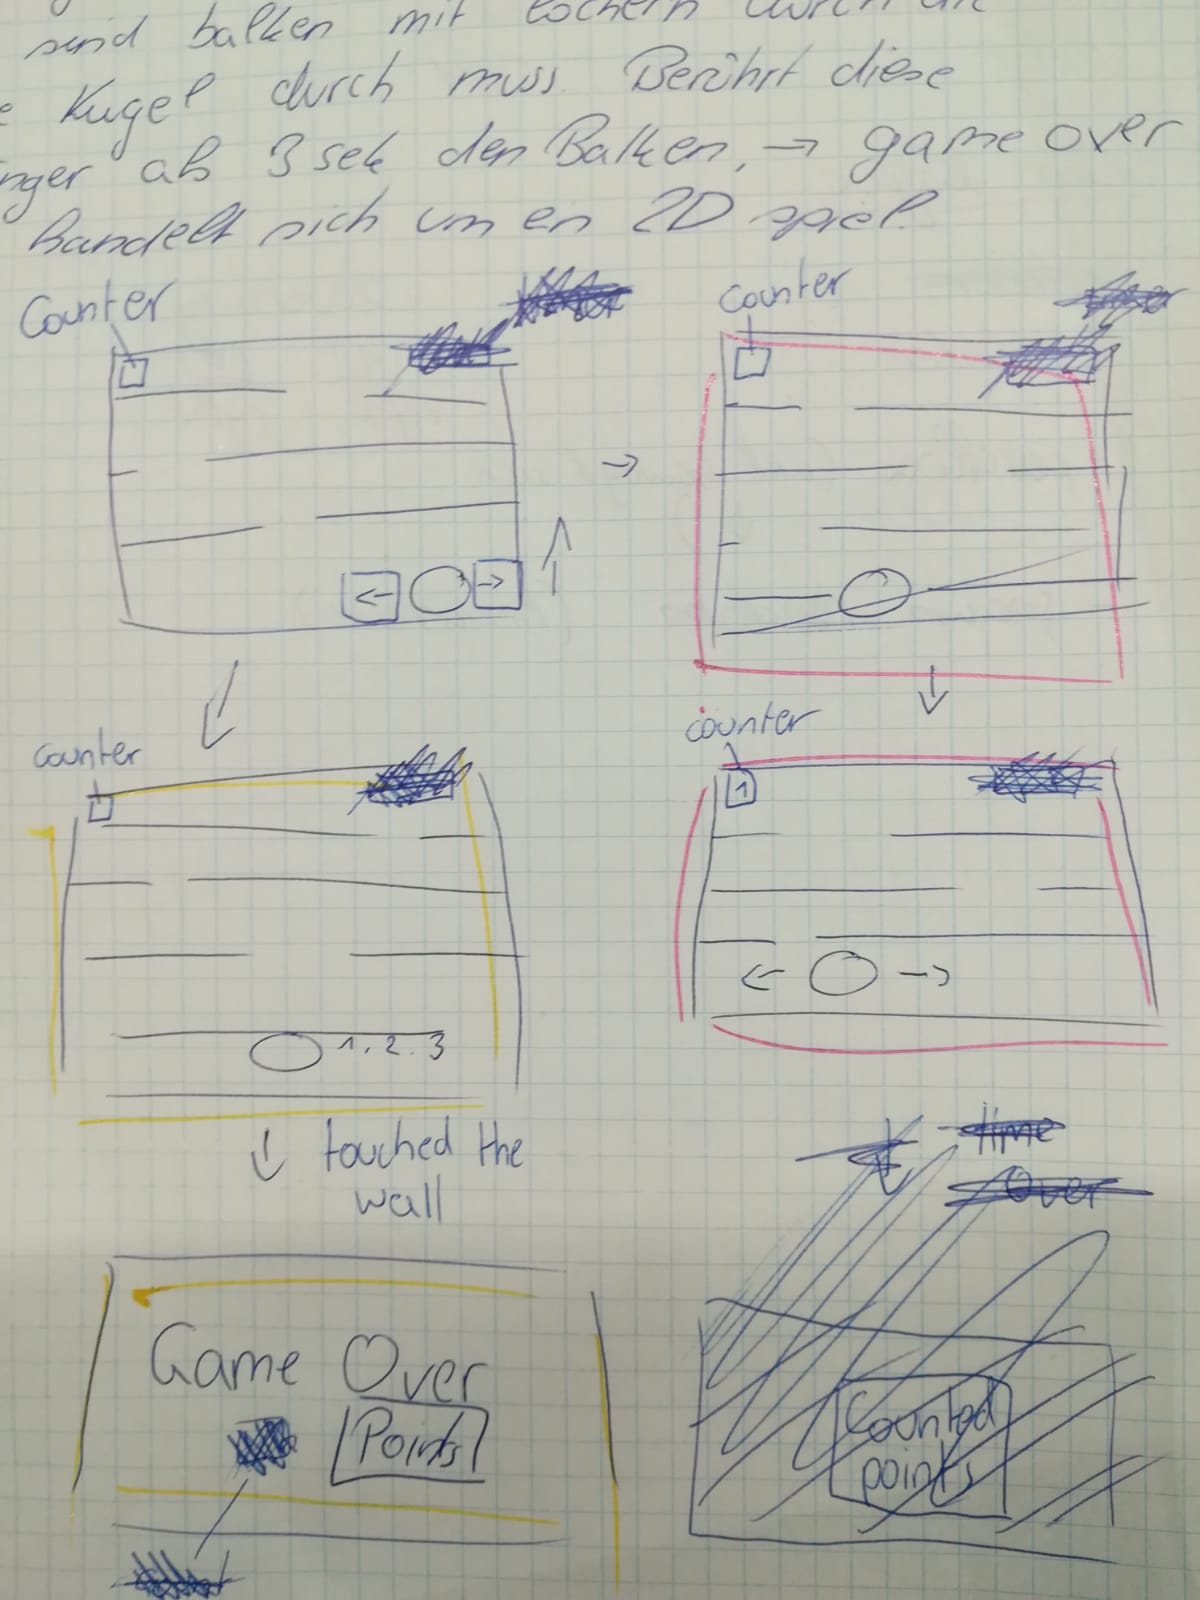 sind balken mit löchern durch die
Kugel durch muss. Berührt diese
nger als 3 sek den Balken, → game over
handelt sich um en 2D spiel.
Counter
counter
←
→
counter
counter
1
← →
1. 2. 3
touched the
wall
time
over
Game Over
Points
Counted
points